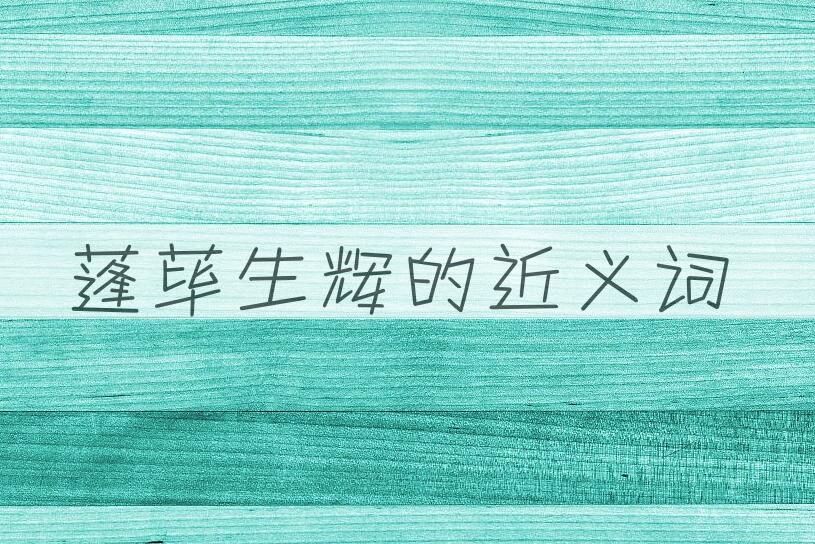 蓬荜生辉的近义词